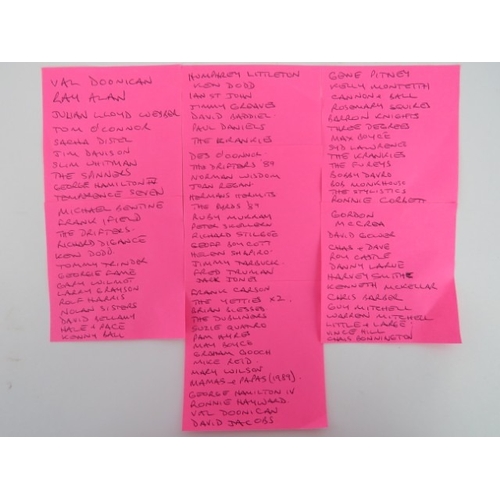 VAL DOONICAN
RAY ALAN
JULIAN LLOYD WEBBER
TOM O'CONNOR
SACHA DISTEL
JIM DAVISON
SLIM WHITMAN
THE SPINNERS
GEORGE HAMILTON IV
TEMPERENCE SEVEN
MICHAEL BENTINE
FRANK IFIELD
THE DRIFTERS
RICHARD DIGANCE
KEN DODD
TOMMY TRINDER
GEORGIE FAME
GARY WILMOT
LARRY GRAYSON
ROLF HARRIS
NOLAN SISTERS
DAVID BELLAMY
HALE & PACE
KENNY BALL
HUMPHREY LITTLETON
KEN DODD
IAN ST JOHN
JIMMY GREAVES
DAVID BADDIEL
PAUL DANIELS
THE KRANKIES
DES O'CONNOR
THE DRIFTERS '89
NORMAN WISDOM
JOAN REGAN
HERMANS HERMITS
THE BYRDS '89
RUBY MURRAY
PETER SKELLERN
RICHARD STILGOE
GEOFF BOYCOTT
HELEN SHAPIRO
JIMMY TARBUCK
FRED TRUMAN
JACK JONES
FRANK CARSON
THE YETTIES X2
BRIAN BLESSED
THE DUBLINERS
SUZIE QUATRO
PAM AYRES
MAX BOYCE
GRAHAM GOOCH
MIKE REID
MARY WILSON
MAMAS & PAPAS (1989)
GEORGE HAMILTON IV
RONNIE HAYWARD
VAL DOONICAN
DAVID JACOBS
GENE PITNEY
KELLY MONTEITH
CANNON & BALL
ROSEMARY SQUIRES
BARRON KNIGHTS
THREE DEGREES
MAX BOYCE
SYD LAWRENCE
THE KRANKIES
THE FUREYS
BOBBY DAVRO
BOB MONKHOUSE
THE STYLISTICS
RONNIE CORBETT
GORDON
McCREA
DAVID GOWER
CHAS & DAVE
ROY CASTLE
DANNY LARUE
HARVEY SMITH
KENNETH McKELLAR
CHRIS BARBER
GUY MITCHELL
WARREN MITCHELL
LITTLE & LARGE
VINCE HILL
CHRIS BONNINGTON